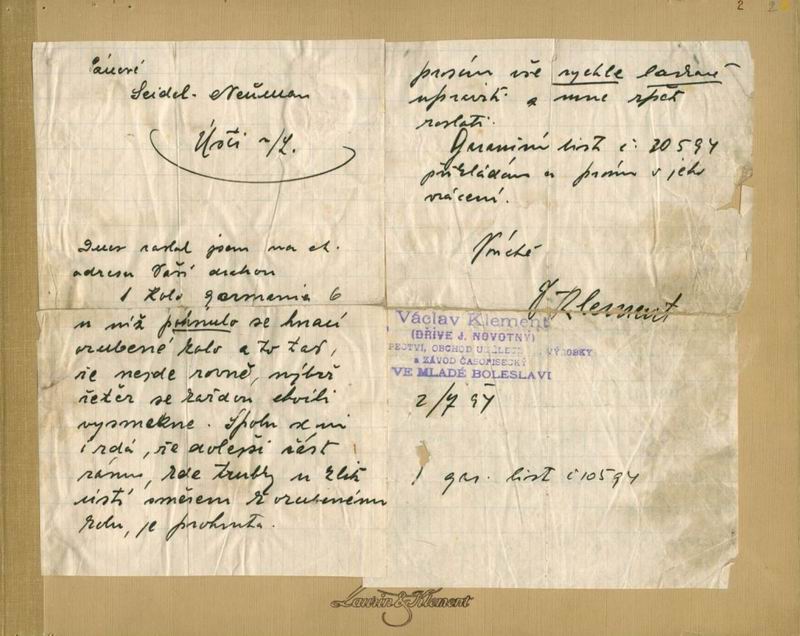 2
Pánové
Seidel - Neuman
Ústí n/L.
Dnes zaslal jsem na ct.
adresu Vaší drahou
1 Kolo Germania 6
u níž pohnulo se hnací
ozubené kolo a to tak,
že nejde rovně, nýbrž
řetěz se každou chvíli
vysmekne. Spolu se mi
i zdá, že dolejší část
rámu, kde trubky u klik
ústí směrem k ozubenému
kolu, je prohnuta.
prosím vše rychle laskavě
upraviti a mne zpět
zaslati.
Garanční list č. 20594
přikládám a prosím o jeho
vrácení.
V úctě
V Klement
Václav Klement
(DŘÍVE J. NOVOTNÝ)
OBCHOD VÝROBKY
A ZÁVOD ČASOPISECKÝ
VE MLADÉ BOLESLAVI
2/7 94
1 gar. list č 10594
Laurin & Klement